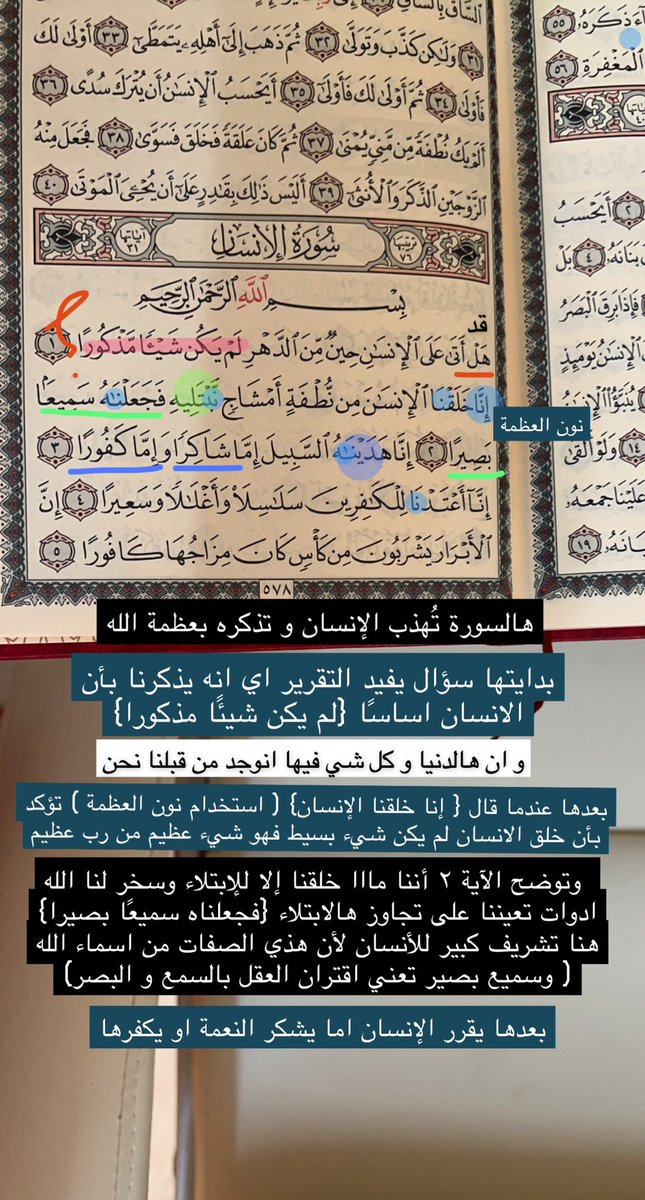 السَّاقُ بِالسَّاقِ
٣١ وَلَٰكِن كَذَّبَ وَتَوَلَّىٰ ٣٢ ثُمَّ ذَهَبَ إِلَىٰٓ أَهْلِهِۦ يَتَمَطَّىٰٓ ٣٣ أَوْلَىٰ لَكَ
فَأَوْلَىٰ ٣٤ ثُمَّ أَوْلَىٰ لَكَ فَأَوْلَىٰٓ ٣٥ أَيَحْسَبُ ٱلْإِنسَٰنُ أَن يُتْرَكَ سُدًى ٣٦
أَلَمْ يَكُ نُطْفَةً مِّن مَّنِىٍّ يُمْنَىٰ ٣٧ ثُمَّ كَانَ عَلَقَةً فَخَلَقَ فَسَوَّىٰ ٣٨ فَجَعَلَ مِنْهُ
ٱلزَّوْجَيْنِ ٱلذَّكَرَ وَٱلْأُنثَىٰٓ ٣٩ أَلَيْسَ ذَٰلِكَ بِقَٰدِرٍ عَلَىٰٓ أَن يُحْـِۧىَ ٱلْمَوْتَىٰ ٤٠
ترتيبها ٧٦ سُورَةُ الإِنسَانِ آياتها ٣١
بِسْمِ ٱللَّهِ ٱلرَّحْمَٰنِ ٱلرَّحِيمِ
قد
هَلْ أَتَىٰ عَلَى ٱلْإِنسَٰنِ حِينٌ مِّنَ ٱلدَّهْرِ لَمْ يَكُن شَيْـًٔا مَّذْكُورًا ١ ؟
إِنَّا خَلَقْنَا ٱلْإِنسَٰنَ مِن نُّطْفَةٍ أَمْشَاجٍ نَّبْتَلِيهِ فَجَعَلْنَٰهُ سَمِيعًۢا
نون العظمة
بَصِيرًا ٢ إِنَّا هَدَيْنَٰهُ ٱلسَّبِيلَ إِمَّا شَاكِرًا وَإِمَّا كَفُورًا ٣
إِنَّآ أَعْتَدْنَا لِلْكَٰفِرِينَ سَلَٰسِلَا۟ وَأَغْلَٰلًا وَسَعِيرًا ٤ إِنَّ
ٱلْأَبْرَارَ يَشْرَبُونَ مِن كَأْسٍ كَانَ مِزَاجُهَا كَافُورًا ٥
٥٧٨
ذَكَرَهُۥ ٥٥
ٱلْمَغْفِرَةِ ٥٦
٢ أَيَحْسَبُ
بَنَانَهُۥ ٤ بَلْ
فَإِذَا بَرِقَ ٱلْبَصَرُ
ٱلْإِنسَٰنُ يَوْمَئِذٍ
يُنَبَّؤُا۟ ٱلْإِنسَٰنُ
١٤ وَلَوْ أَلْقَىٰ
عَلَيْنَا جَمْعَهُۥ
١٩
هالسورة تُهذب الإنسان و تذكره بعظمة الله
بدايتها سؤال يفيد التقرير اي انه يذكرنا بأن
الانسان اساسًا {لم يكن شيئًا مذكورا}
و ان هالدنيا و كل شي فيها انوجد من قبلنا نحن
بعدها عندما قال { إنا خلقنا الإنسان} ( استخدام نون العظمة ) تؤكد
بأن خلق الانسان لم يكن شيء بسيط فهو شيء عظيم من رب عظيم
وتوضح الآية ٢ أننا مااا خلقنا إلا للإبتلاء وسخر لنا الله
ادوات تعيننا على تجاوز هالابتلاء {فجعلناه سميعًا بصيرا}
هنا تشريف كبير للأنسان لأن هذي الصفات من اسماء الله
( وسميع بصير تعني اقتران العقل بالسمع و البصر)
بعدها يقرر الإنسان اما يشكر النعمة او يكفرها